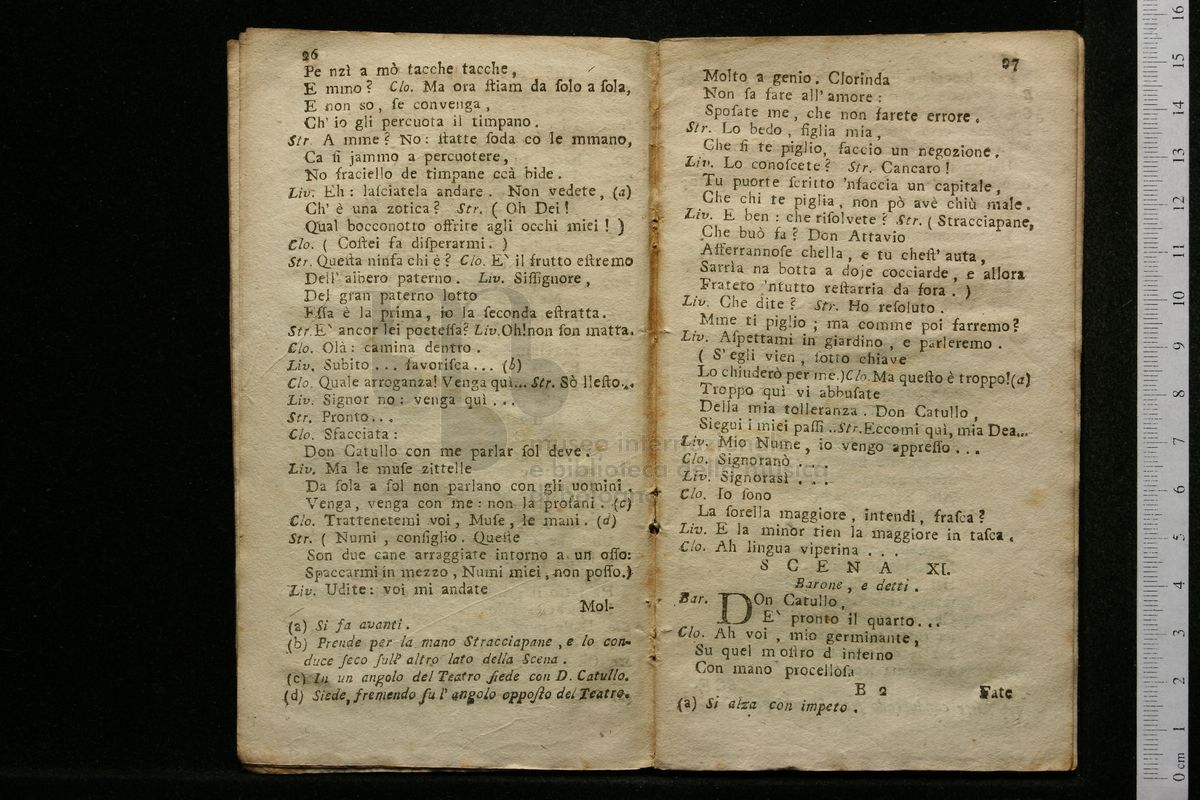 26
Pe nzì a mò tacche tacche,
E mmo? Clo. Ma ora ſtiam da ſolo a ſola,
E non so, ſe convenga,
Ch' io gli percuota il timpano.
Str. A mme? No: ſtatte ſoda co le mmano,
Ca ſi jammo a percuotere,
No fraciello de timpane ccà bide.
Liv. Eh: laſciatela andare. Non vedete, (a)
Ch' è una zotica? Str. ( Oh Dei!
Qual bocconotto offrire agli occhi miei! )
Clo. ( Coſtei fa diſperarmi. )
Str. Queſta ninfa chi è? Clo. E' il frutto eſtremo
Dell' albero paterno. Liv. Siſſignore,
Del gran paterno lotto
Eſſa è la prima, io la ſeconda eſtratta.
Str. E' ancor lei poeteſſa? Liv. Oh! non ſon matta.
Clo. Olà: camina dentro.
Liv. Subito... favoriſca... (b)
Clo. Quale arroganza! Venga quì... Str. Sò lleſto...
Liv. Signor no: venga quì...
Str. Pronto...
Clo. Sfacciata:
Don Catullo con me parlar ſol deve.
Liv. Ma le muſe zittelle
Da ſola a ſol non parlano con gli uomini.
Venga, venga con me: non la profani. (c)
Clo. Trattenetemi voi, Muſe, le mani. (d)
Str. ( Numi, conſiglio. Queſte
Son due cane arraggiate intorno a un oſſo:
Spaccarmi in mezzo, Numi miei, non poſſo.)
Liv. Udite: voi mi andate
Mol-
(a) Si fa avanti.
(b) Prende per la mano Stracciapane, e lo con-
duce ſeco ſull' altro lato della Scena.
(c) In un angolo del Teatro ſiede con D. Catullo.
(d) Siede, fremendo ſu l' angolo oppoſto del Teatro.
97
Molto a genio. Clorinda
Non ſa fare all' amore:
Spoſate me, che non farete errore.
Str. Lo bedo, figlia mia,
Che ſi te piglio, faccio un negozione.
Liv. Lo conoſcete? Str. Cancaro!
Tu puorte ſcritto 'nfaccia un capitale,
Che chi te piglia, non pò avè chiù male.
Liv. E ben: che riſolvete? Str. ( Stracciapane,
Che buò fa? Don Attavio
Afferrannoſe chella, e tu cheſt' auta,
Sarrìa na botta a doje cocciarde, e allora
Frateto 'ntutto reſtarria da fora. )
Liv. Che dite? Str. Ho reſoluto.
Mme ti piglio; ma comme poi farremo?
Liv. Aſpettami in giardino, e parleremo.
( S' egli vien, ſotto chiave
Lo chiuderò per me.) Clo. Ma queſto è troppo! (a)
Troppo quì vi abbuſate
Della mia tolleranza. Don Catullo,
Siegui i miei paſſi.. Str. Eccomi quì, mia Dea...
Liv. Mio Nume, io vengo appreſſo...
Clo. Signoranò...
Liv. Signorasì...
Clo. Io ſono
La ſorella maggiore, intendi, fraſca?
Liv. E la minòr tien la maggiore in taſca.
Clo. Ah lingua viperina...
SCENA XI.
Barone, e detti.
Bar. DOn Catullo,
E' pronto il quarto...
Clo. Ah voi, mio germinante,
Su quel moſtro d' inferno
Con mano procelloſa
B 2 Fate
(a) Si alza con impeto.
museo internazionale
e biblioteca della musica
di bologna
0 cm 1 2 3 4 5 6 7 8 9 10 11 12 13 14 15 16